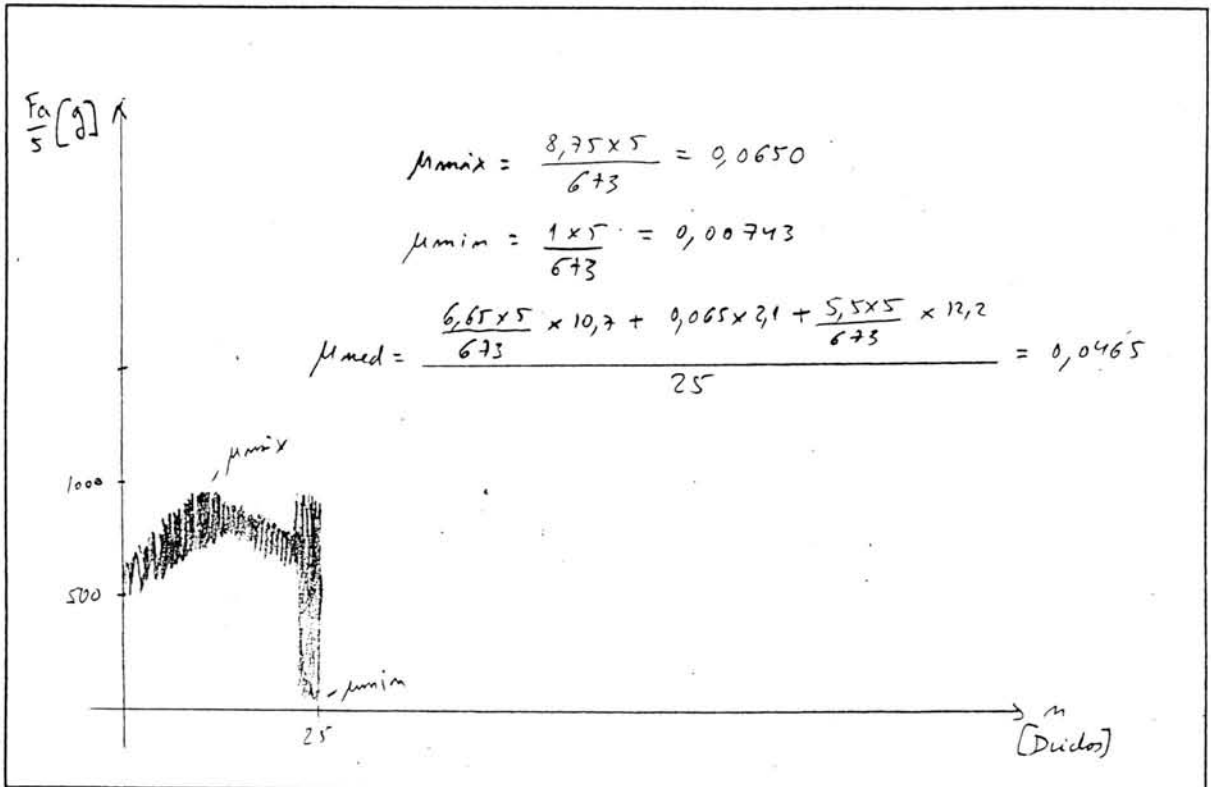 Fa/5 [g]
μmáx = 8,75 x 5 / 673 = 0,0650
μmin = 1 x 5 / 673 = 0,00743
μmed = (6,65 x 5 / 673 x 10,7 + 0,065 x 2,1 + 5,5 x 5 / 673 x 12,2) / 25 = 0,0465
μmáx
1000
500
μmin
25
n